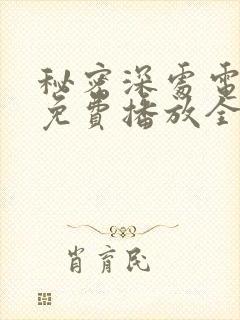 秘密深處電
免費播放全
肖育民